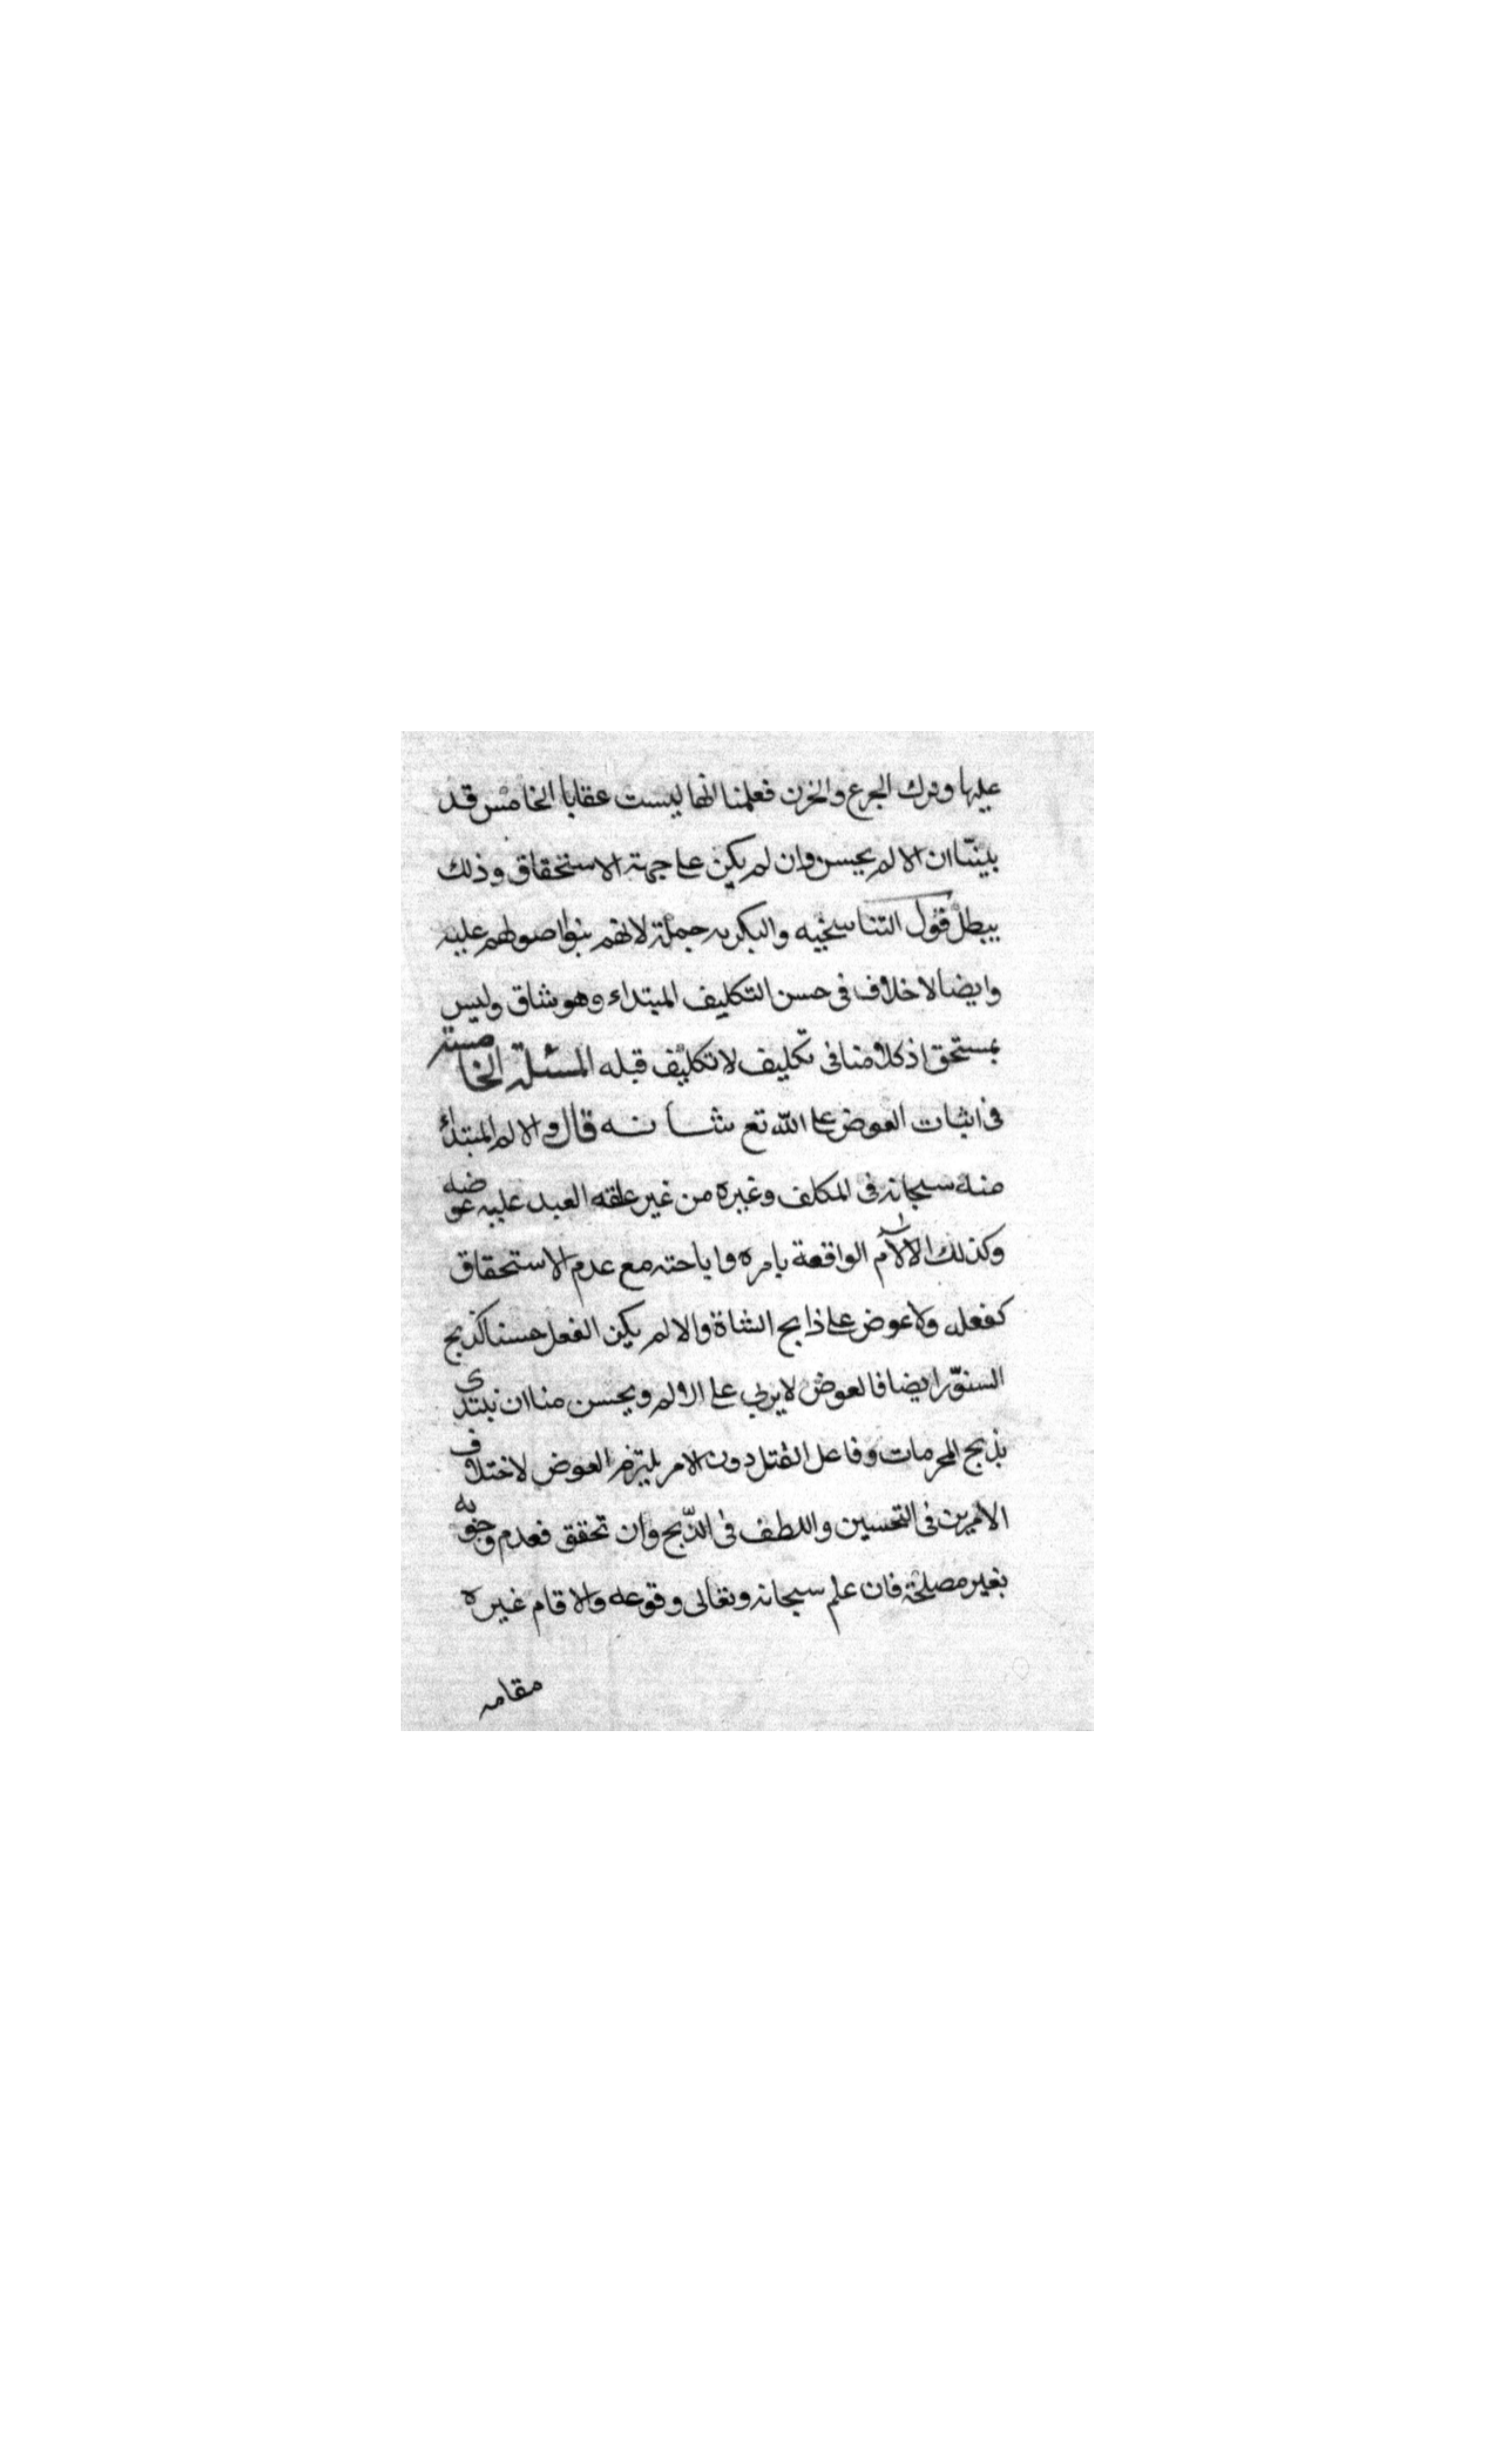 عليها وترك الجزع والحزن فعلمنا انها ليست عقابا الخامس قد
بينّا ان الالم يحسن وان لم يكن على جهة الاستحقاق وذلك
يبطل قول التناسخيه والبكريه جملة لانهم بنوا اصولهم عليه
وايضا لا خلاف فى حسن التكليف المبتداء وهو شاق وليس
بمستحق اذ كلامنا فى تكليف لا تكليف قبله المسئلة الخامسة
فى اثبات العوض على الله تع شانه قال والالم المبتدأ
منه سبحانه فى المكلف وغيره من غير علقه العبد عليه عوضه
وكذلك الالآم الواقعة بامره واباحته مع عدم الاستحقاق
كفعله ولا عوض على ذابح الشاة والا لم يكن الفعل حسنا كذبح
السنّور ايضا فالعوض لا يربى على الالم ويحسن منا ان نبتدى
بذبح المحرمات وفاعل القتل دون الامر يلتزم العوض لاختلاف
الامرين فى التحسين واللطف فى الذّبح وان تحقق فعدم وجوبه
بغير مصلحة فان علم سبحانه وتعالى وقوعه والا قام غيره
مقامه